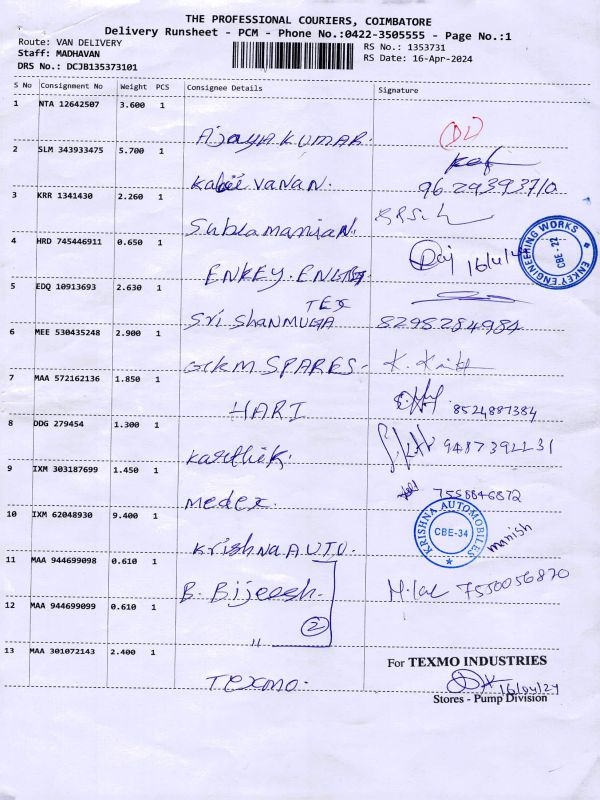 THE PROFESSIONAL COURIERS, COIMBATORE
Delivery Runsheet - PCM - Phone No.:0422-3505555 - Page No.:1
Route: VAN DELIVERY
RS No.: 1353731
Staff: MADHAVAN
RS Date: 16-Apr-2024
DRS No.: DCJB135373101
S No Consignment No Weight PCS Consignee Details Signature
1 NTA 12642507 3.600 1 AJAYA KUMAR.
2 SLM 343933475 5.700 1 vanan. 9629393710
3 KRR 1341430 2.260 1 Subramanian.
4 HRD 745446911 0.650 1 ENKEY.
ENKEY ENGINEERING WORKS CBE-22
5 EDQ 10913693 2.630 1 Sri Shanmuga TEX 8298284984
6 MEE 530435248 2.900 1 GCKM SPARES-
7 MAA 572162136 1.850 1 HARI 8524887384
8 DDG 279454 1.300 1 Karthick. 9487392231
9 IXM 303187699 1.450 1 Medex. 7558846872
10 IXM 62048930 9.400 1 Krishna AUTO.
KRISHNA AUTOMOBILES CBE-34 manish
11 MAA 944699098 0.610 1 B. Bijeesh. 7550056870
12 MAA 944699099 0.610 1 " 2
13 MAA 301072143 2.400 1 Texmo.
For TEXMO INDUSTRIES
16/04/24
Stores - Pump Division